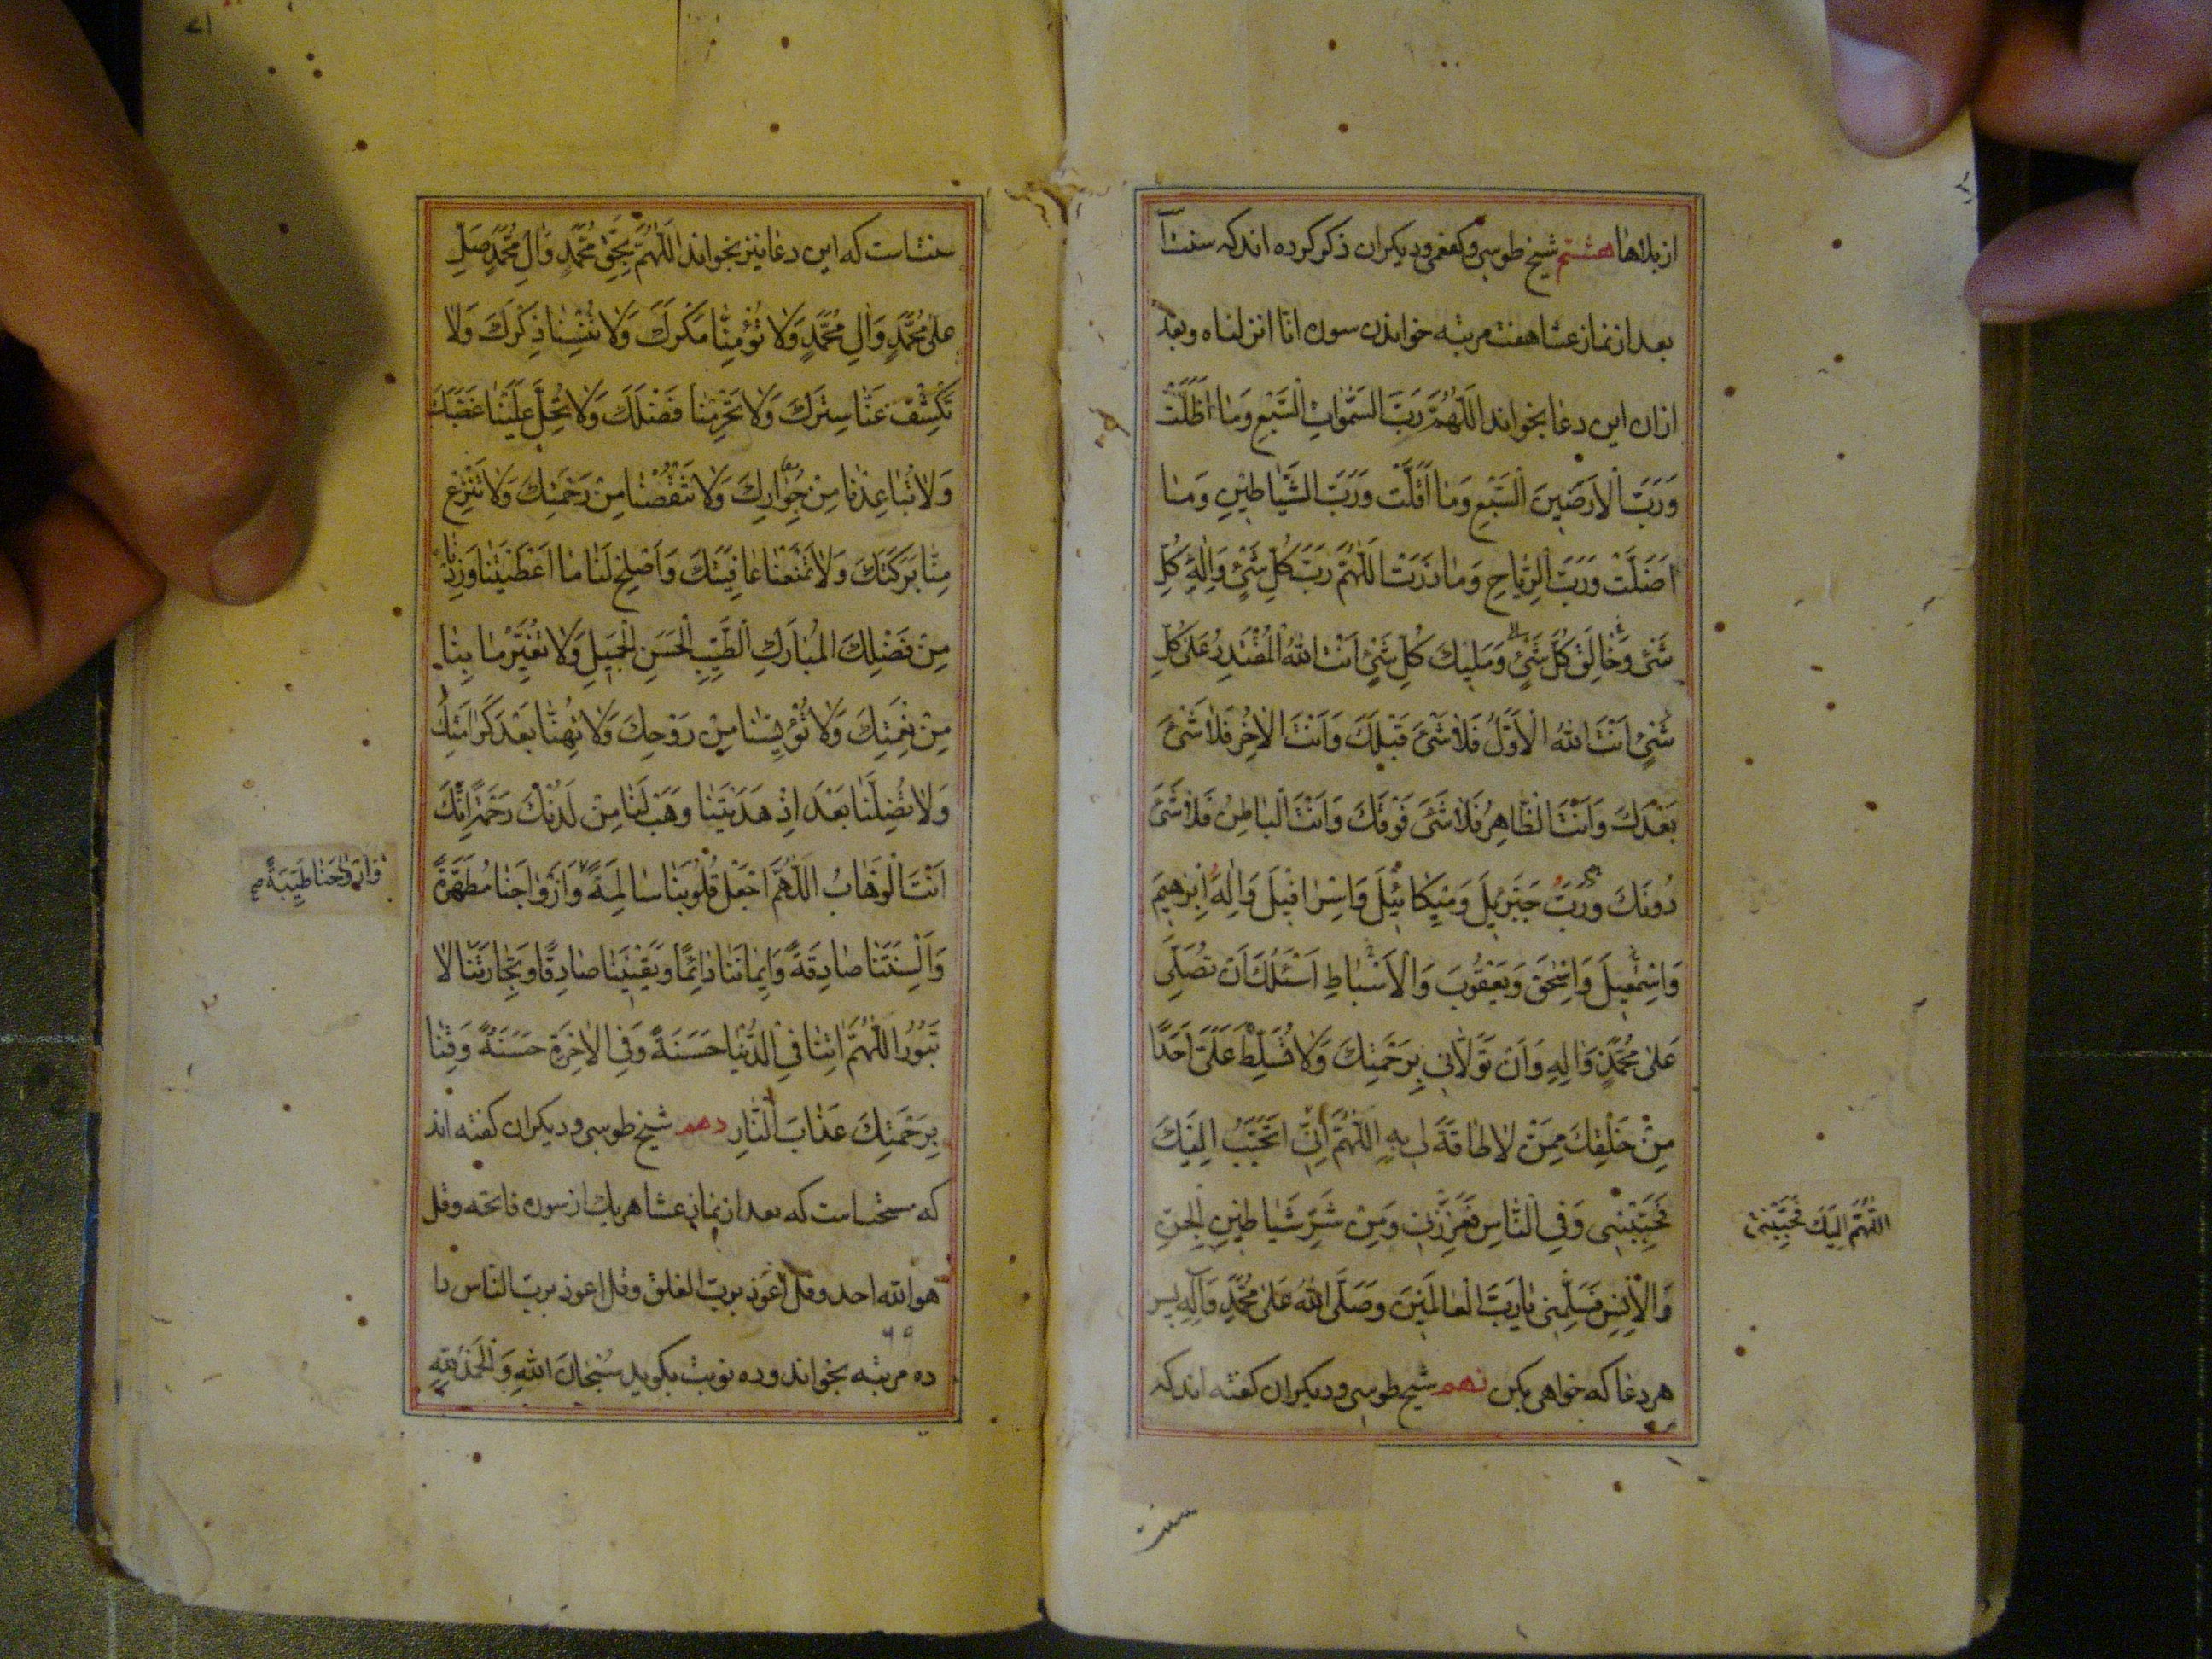 از بلاها هشتم شیخ طوسی و کفعمی و دیکران ذکر کرده اند که سنت
بعد از نماز عشا هفت مرتبه خواندن سوره انّا انزلناه و بعد
ازان این دعا بخواند اَللّٰهُمَّ رَبَّ السَّمٰوٰاتِ السَّبْعِ وَمٰا اَظَلَّتْ
وَرَبَّ الْاَرَضٖینَ السَّبْعِ وَمٰا اَقَلَّتْ وَرَبَّ الشَّیٰاطٖینِ وَمٰا
اَضَلَّتْ وَرَبَّ الرِّیٰاحِ وَمٰا ذَرَتْ اَللّٰهُمَّ رَبَّ کُلِّ شَیْءٍ وَاِلٰهَ کُلِّ
شَیْءٍ وَخٰالِقَ کُلِّ شَیْءٍ وَمَلٖیكَ کُلِّ شَیْءٍ اَنْتَ اللّٰهُ الْمُقْتَدِرُ عَلٰی کُلِّ
شَیْءٍ اَنْتَ اللّٰهُ الْاَوَّلُ فَلٰا شَیْءَ قَبْلَكَ وَاَنْتَ الْاٰخِرُ فَلٰا شَیْءَ
بَعْدَكَ وَاَنْتَ الظّٰاهِرُ فَلٰا شَیْءَ فَوْقَكَ وَاَنْتَ الْبٰاطِنُ فَلٰا شَیْءَ
دُونَكَ وَرَبَّ جَبْرَئٖیلَ وَمٖیکٰائٖیلَ وَاِسْرٰافٖیلَ وَاِلٰهَ اِبْرٰهٖیمَ
وَاِسْمٰعٖیلَ وَاِسْحٰقَ وَیَعْقُوبَ وَالْاَسْبٰاطِ اَسْئَلُكَ اَنْ تُصَلِّیَ
عَلٰی مُحَمَّدٍ وَاٰلِهِ وَاَنْ تَوَلّٰانٖی بِرَحْمَتِكَ وَلٰا تُسَلِّطْ عَلَیَّ اَحَدًا
مِنْ خَلْقِكَ مِمَّنْ لٰا طٰاقَةَ لٖی بِهِ اَللّٰهُمَّ اِنّٖی اَتَحَبَّبُ اِلَیْكَ
فَحَبِّبْنٖی وَفِی النّٰاسِ فَعَزِّزْنٖی وَمِنْ شَرِّ شَیٰاطٖینِ الْجِنِّ
وَالْاِنْسِ فَسَلِّمْنٖی یٰا رَبَّ الْعٰالَمٖینَ وَصَلَّی اللّٰهُ عَلٰی مُحَمَّدٍ وَاٰلِهِ پس
هر دعا که خواهی بکن نهم شیخ طوسی و دیکران کفته اند که
اللّٰهُمَّ اِلَیْكَ فَحَبِّبْنٖی
سنت
سنت است که این دعا نیز بخواند اَللّٰهُمَّ بِحَقِّ مُحَمَّدٍ وَاٰلِ مُحَمَّدٍ صَلِّ
عَلٰی مُحَمَّدٍ وَاٰلِ مُحَمَّدٍ وَلٰا تُؤْمِنّٰا مَکْرَكَ وَلٰا تُنْسِنٰا ذِکْرَكَ وَلٰا
تَکْشِفْ عَنّٰا سِتْرَكَ وَلٰا تَحْرِمْنٰا فَضْلَكَ وَلٰا تُحِلَّ عَلَیْنٰا غَضَبَكَ
وَلٰا تُبٰاعِدْنٰا مِنْ جِوٰارِكَ وَلٰا تَنْقُصْنٰا مِنْ رَحْمَتِكَ وَلٰا تَنْزِعْ
مِنّٰا بَرَکَتَكَ وَلٰا تَمْنَعْنٰا عٰافِیَتَكَ وَاَصْلِحْ لَنٰا مٰا اَعْطَیْتَنٰا وَزِدْنٰا
مِنْ فَضْلِكَ الْمُبٰارَكِ الطَّیِّبِ الْحَسَنِ الْجَمٖیلِ وَلٰا تُغَیِّرْ مٰا بِنٰا
مِنْ نِعْمَتِكَ وَلٰا تُؤْیِسْنٰا مِنْ رَوْحِكَ وَلٰا تُهِنّٰا بَعْدَ کَرٰامَتِكَ
وَلٰا تُضِلَّنٰا بَعْدَ اِذْ هَدَیْتَنٰا وَهَبْ لَنٰا مِنْ لَدُنْكَ رَحْمَةً اِنَّكَ
اَنْتَ الْوَهّٰابُ اَللّٰهُمَّ اجْعَلْ قُلُوبَنٰا سٰالِمَةً وَاَزْوٰاجَنٰا مُطَهَّرَةً
وَاَلْسِنَتَنٰا صٰادِقَةً وَاٖیمٰانَنٰا دٰائِمًا وَیَقٖینَنٰا صٰادِقًا وَتِجٰارَتَنٰا لٰا
تَبُورُ اَللّٰهُمَّ اٰتِنٰا فِی الدُّنْیٰا حَسَنَةً وَفِی الْاٰخِرَةِ حَسَنَةً وَقِنٰا
بِرَحْمَتِكَ عَذٰابَ النّٰارِ دهم شیخ طوسی و دیکران کفته اند
که مستحب است که بعد از نماز عشا هر یك از سوره فاتحه و قل
هو الله احد و قل اعوذ بربّ الفلق و قل اعوذ بربّ النّاس را
ده مرتبه بخواند و ده نوبت بکوید سُبْحٰانَ اللّٰهِ وَالْحَمْدُ لِلّٰهِ
وَاَرْوٰاحَنٰا طَیِّبَةً صح